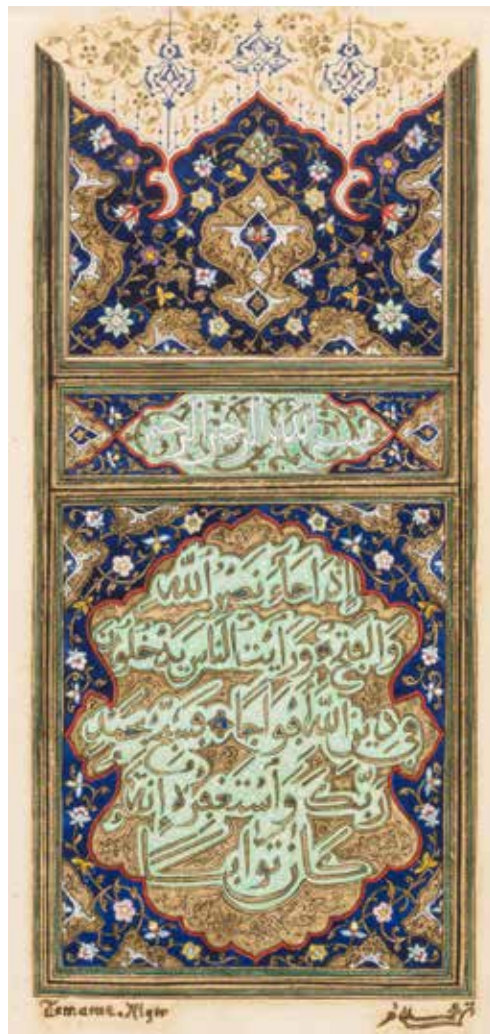 بسم الله الرحمن الرحيم
إِذَا جَاءَ نَصْرُ اللَّهِ
وَالْفَتْحُ وَرَأَيْتَ النَّاسَ يَدْخُلُونَ
فِي دِينِ اللَّهِ أَفْوَاجًا فَسَبِّحْ بِحَمْدِ
رَبِّكَ وَاسْتَغْفِرْهُ إِنَّهُ
كَانَ تَوَّابًا
Temame. Alger